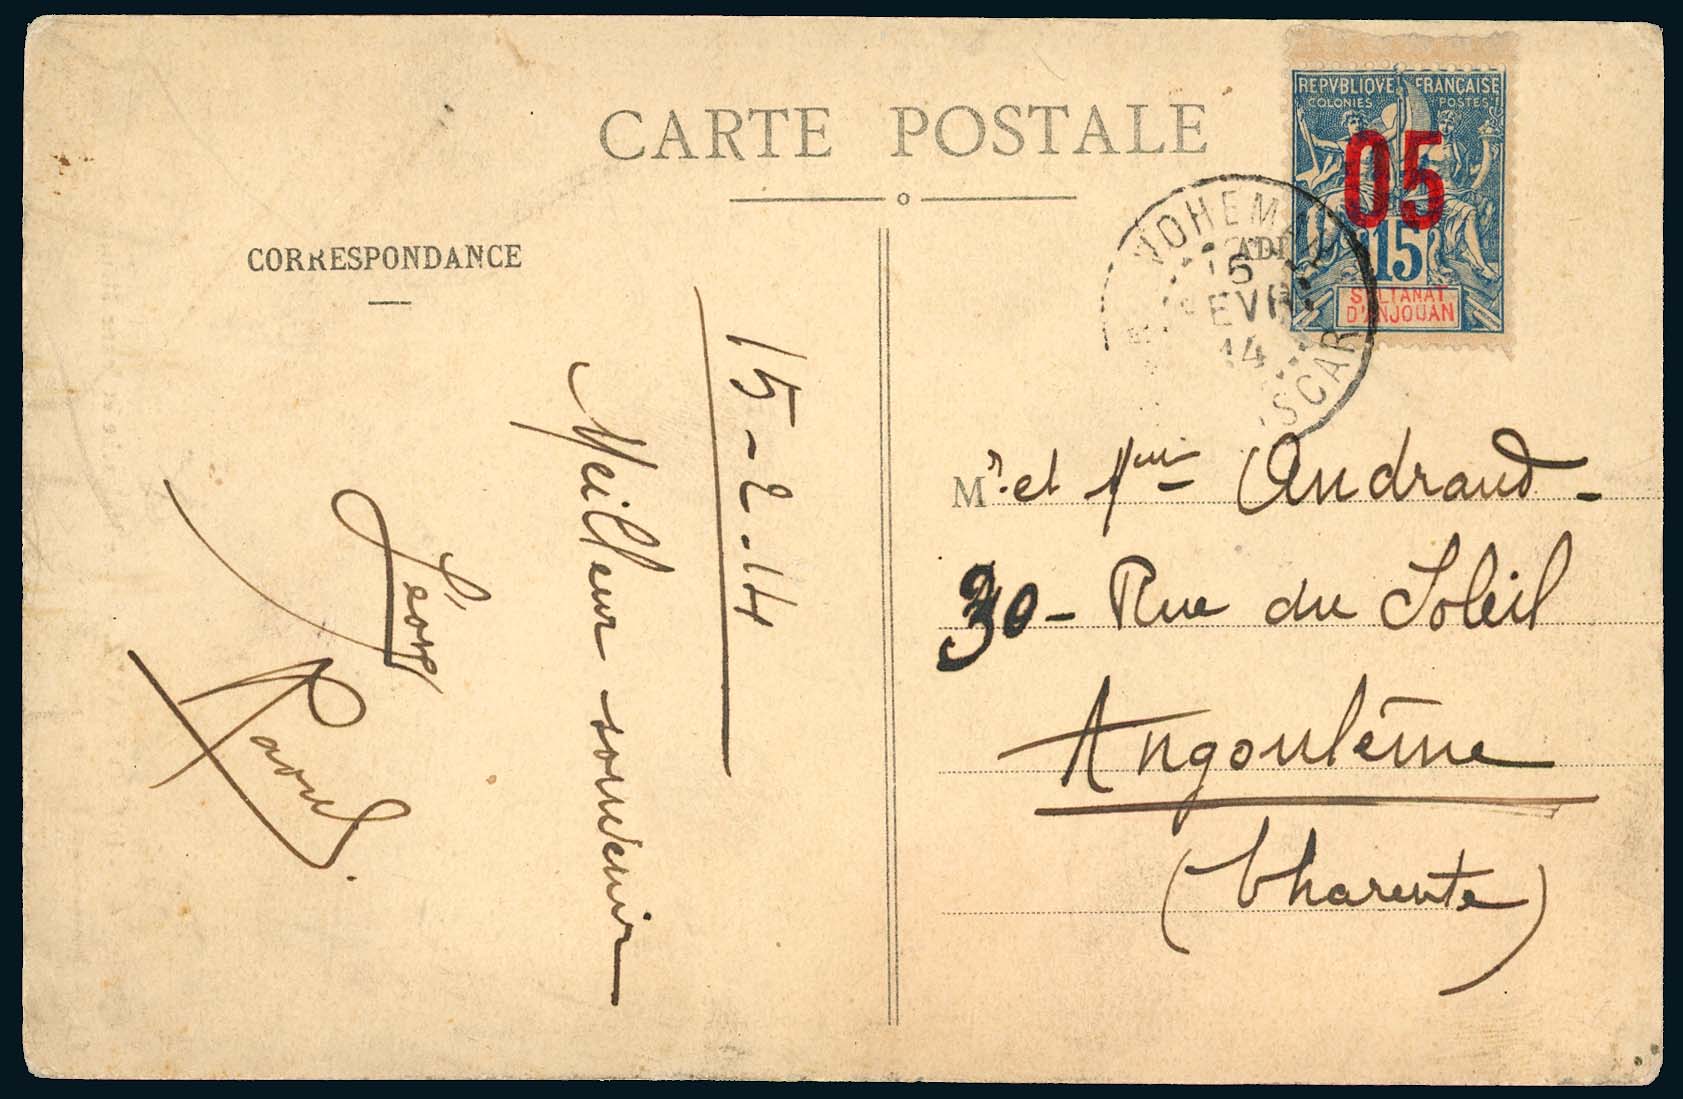 CARTE POSTALE
CORRESPONDANCE
15-2-14
Meilleur souvenir
Raoul.
REPVBLIQVE FRANÇAISE
COLONIES POSTES
05
15
SULTANAT
D'ANJOUAN
VOHEMAR
15
EVR
14
SCAR
Mr. et Mme Andraud-
30- Rue du Soleil
Angoulême
(Charente)